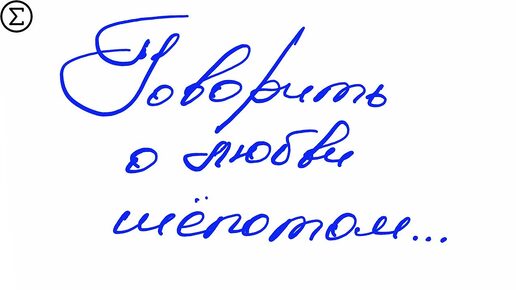 Σ
Говорить
о любви
шёпотом...